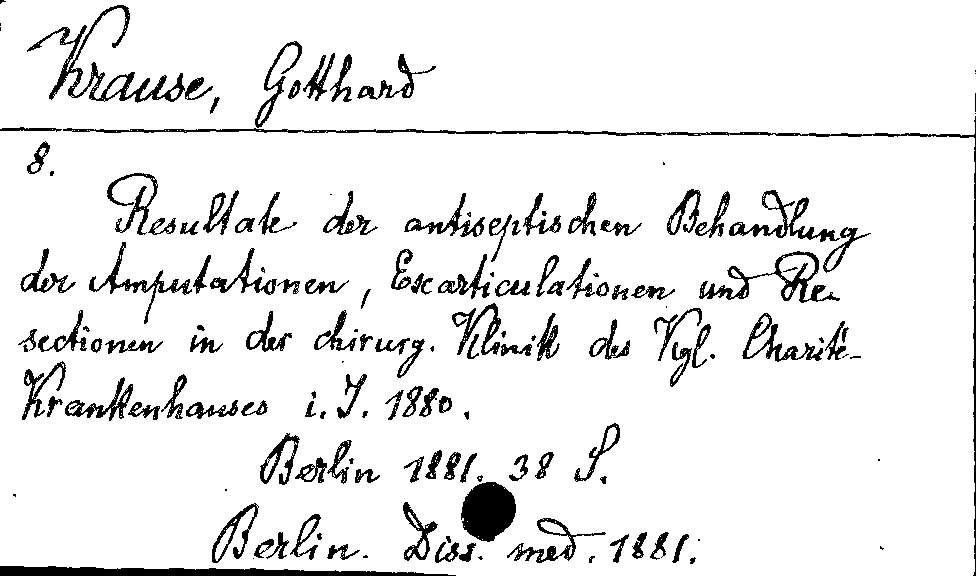 Krause, Gotthard
8.
Resultate der antiseptischen Behandlung
der Amputationen, Exarticulationen und Re-
sectionen in der chirurg. Klinik des Kgl. Charité-
Krankenhauses i. J. 1880.
Berlin 1881. 38 S.
Berlin. Diss. med. 1881.